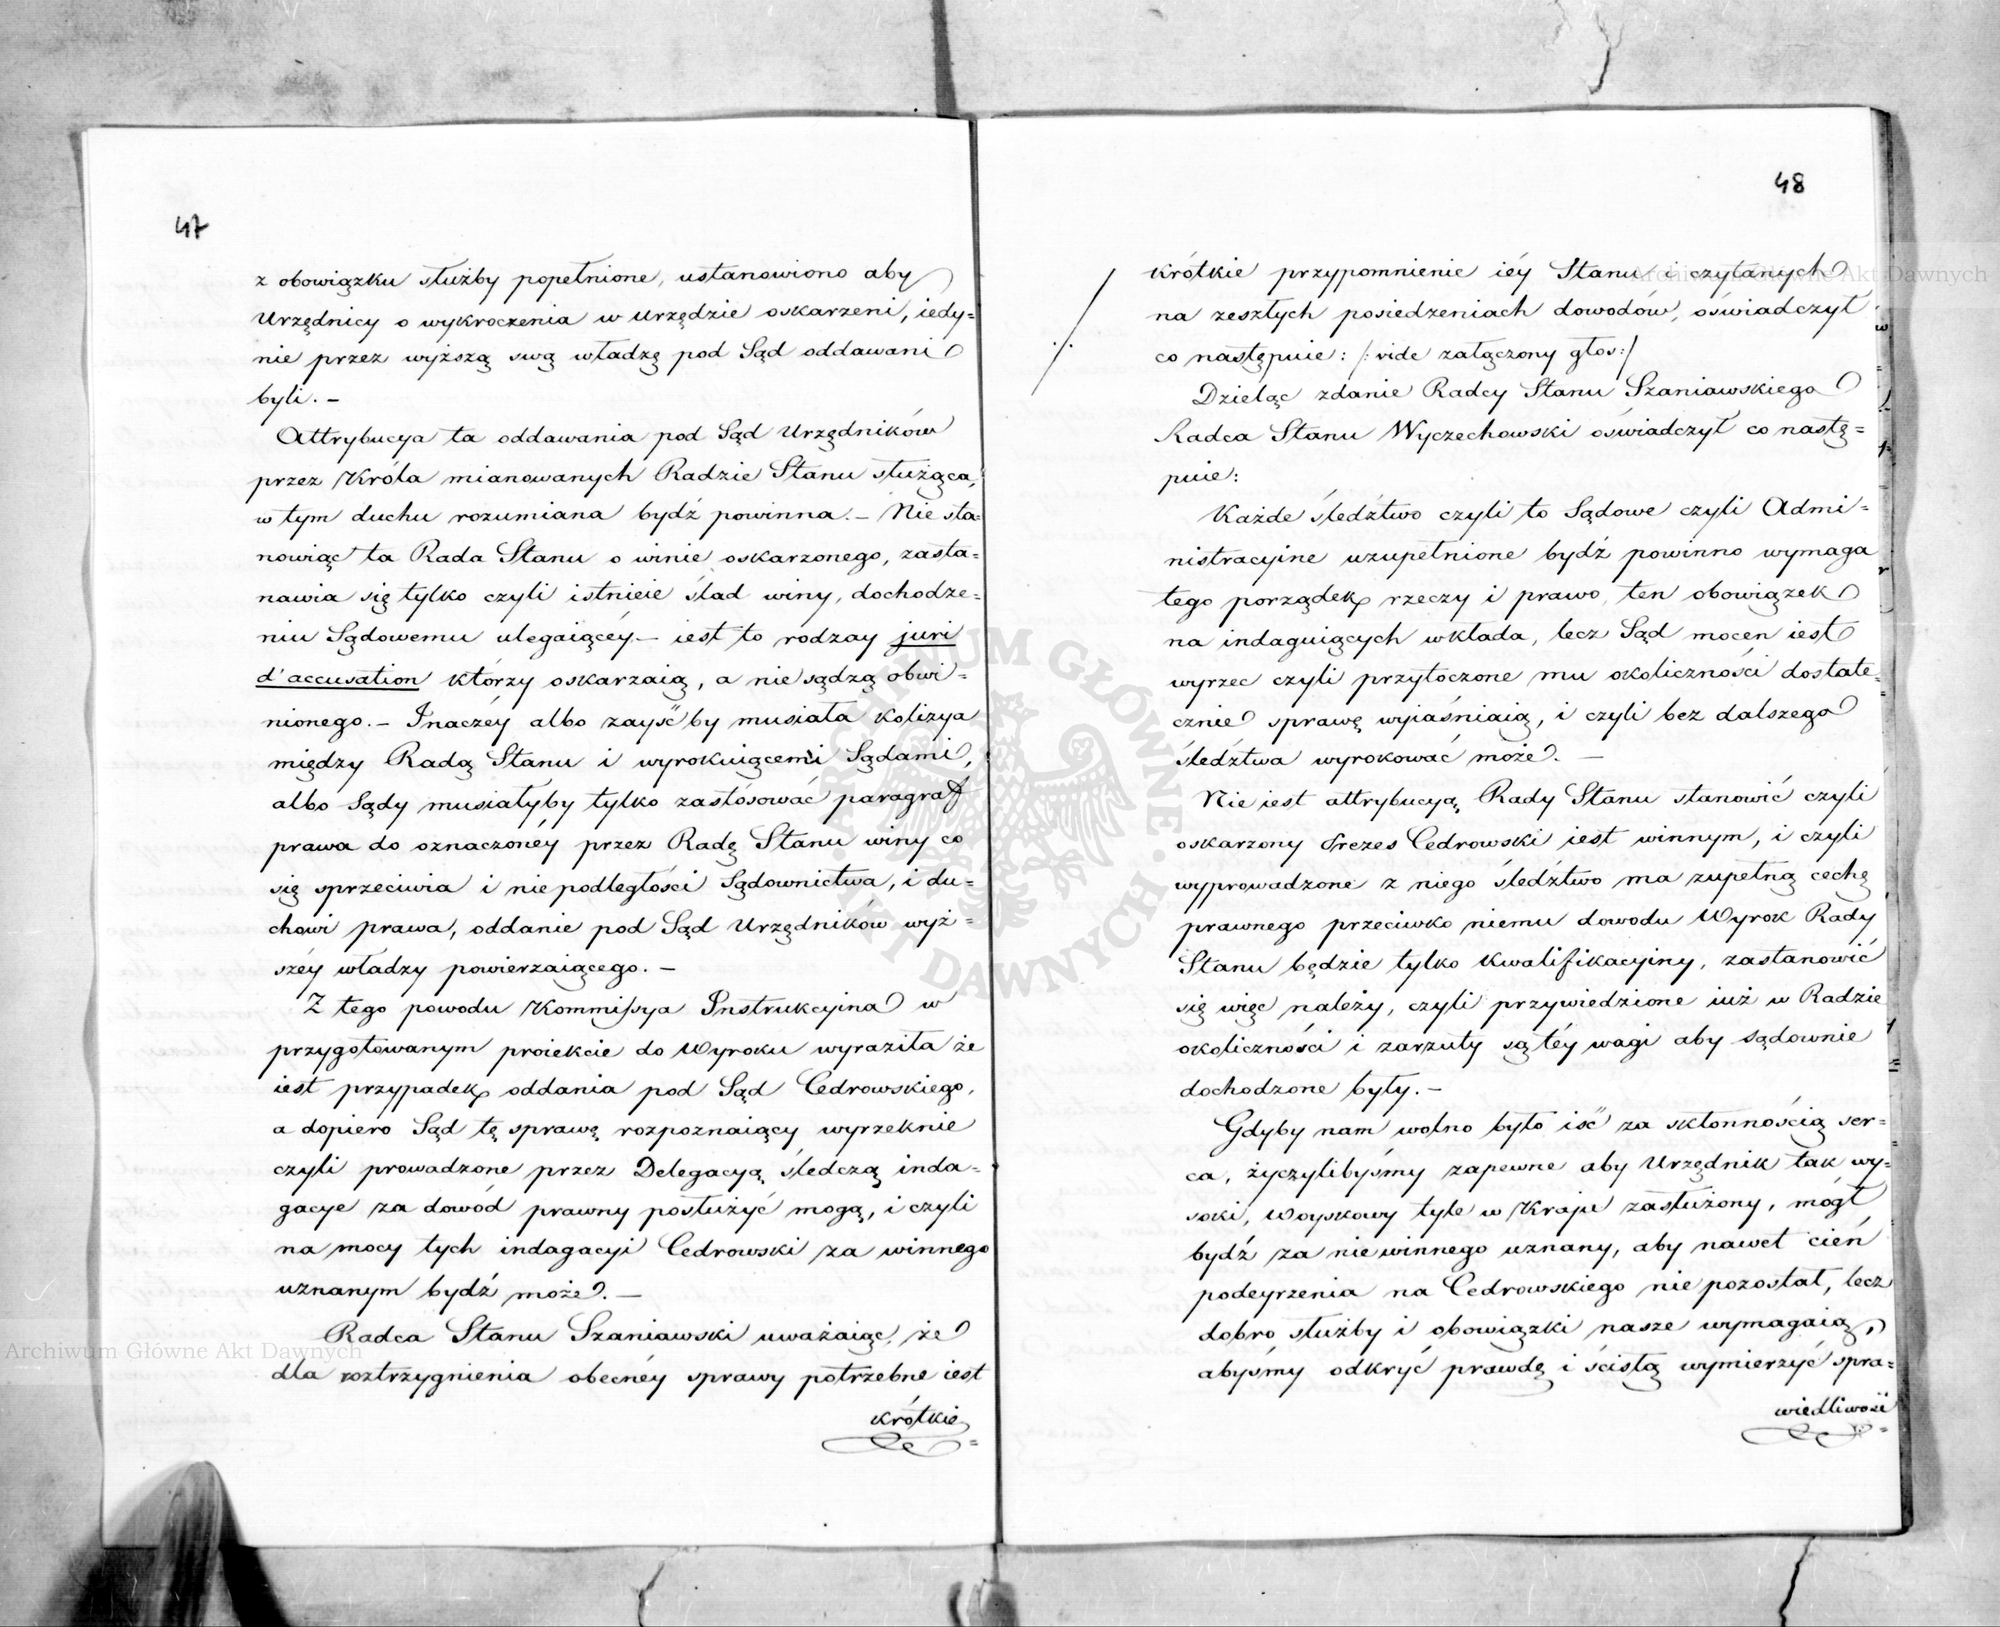 47
z obowiązku służby popełnione, ustanowiono aby
Urzędnicy o wykroczenia w urzędzie oskarzeni, iedy=
nie przez wyższą swą władzę pod Sąd oddawani
byli. –
Attrybucya ta oddawania pod Sąd Urzędników
przez Króla mianowanych Radzie Stanu służąca,
w tym duchu rozumiana bydź powinna. – Nie sta=
nowiąc ta Rada Stanu o winie oskarzonego, zasta=
nawia się tylko czyli istnieie ślad winy, dochodze=
niu Sądowemu ulegaiącéy – iest to rodzay juri
d'accusation którzy oskarzaią, a nie sądzą obwi=
nionego. – Inaczéy albo zayśćby musiała kolizya
między Radą Stanu i wyrokuiącemi Sądami,
albo Sądy musiałyby tylko zastósować paragraf
prawa do oznaczonéy przez Radę Stanu winy co
się sprzeciwia i niepodległości Sądownictwa, i du=
chowi prawa, oddanie pod Sąd Urzędników wyż=
széy władzy powierzaiącego. –
Z tego powodu Kommissya Instrukcyjna w
przygotowanym proiekcie do Wyroku wyraziła że
iest przypadek oddania pod Sąd Cedrowskiego,
a dopiero Sąd tę sprawę rozpoznaiący wyrzeknie
czyli prowadzone przez Delegacyą śledczą inda=
gacye za dowód prawny posłużyć mogą, i czyli
na mocy tych indagacyi Cedrowski za winnego
uznanym bydź może. –
Radca Stanu Szaniawski uważaiąc, że
dla roztrzygnienia obecnéy sprawy potrzebne iest
krótkie
48
krótkie przypomnienie iéy Stanu i czytanych
na zeszłych posiedzeniach dowodów, oświadczył
co następuie: /: vide załączony głos :/
Dzieląc zdanie Radcy Stanu Szaniawskiego
Radca Stanu Wyczechowski oświadczył co nastę=
puie:
Każde śledztwo czyli to Sądowe czyli Admi=
nistracyine uzupełnione bydź powinno wymaga
tego porządek rzeczy i prawo, ten obowiązek
na indaguiących wkłada, lecz Sąd mocen iest
wyrzec czyli przytoczone mu okoliczności dostate=
cznie sprawę wyiaśniaią, i czyli bez dalszego
śledztwa wyrokować może. –
Nie iest attrybucyą Rady Stanu stanowić czyli
oskarzony Prezes Cedrowski iest winnym, i czyli
wyprowadzone z niego śledztwo ma zupełną cechę
prawnego przeciwko niemu dowodu Wyrok Rady
Stanu będzie tylko kwalifikacyiny, zastanowić
się więc należy, czyli przywiedzione iuż w Radzie
okoliczności i zarzuty są téy wagi aby sądownie
dochodzone były. –
Gdyby nam wolno było iść za skłonnością ser=
ca, życzylibyśmy zapewne aby Urzędnik tak wy=
soki, Woyskowy tyle w Kraju zasłużony, mógł
bydź za niewinnego uznany, aby nawet cień
podeyrzenia na Cedrowskiego nie pozostał, lecz
dobro służby i obowiązki nasze wymagaią,
abyśmy odkryć prawdę i ścisłą wymierzyć spra=
wiedliwość
Archiwum Główne Akt Dawnych
Archiwum Główne Akt Dawnych
ARCHIWUM GŁÓWNE · AKT DAWNYCH ·